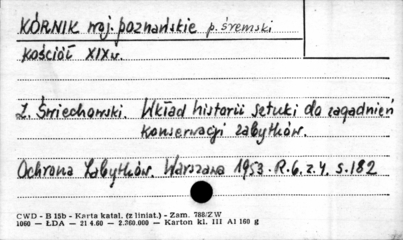 KÓRNIK woj. poznańskie p. śremski
Kościół XIX w.
Z. Świechowski. Wkład historii sztuki do zagadnień
konserwacji zabytków.
Ochrona Zabytków. Warszawa 1953. R. 6. z. 4. s. 182
CWD - B 15b - Karta katal. (z liniat.) - Zam. 788/ZW
1060 — ŁDA — 21 4.60 — 2.360.000 — Karton kl. III A1 160 g